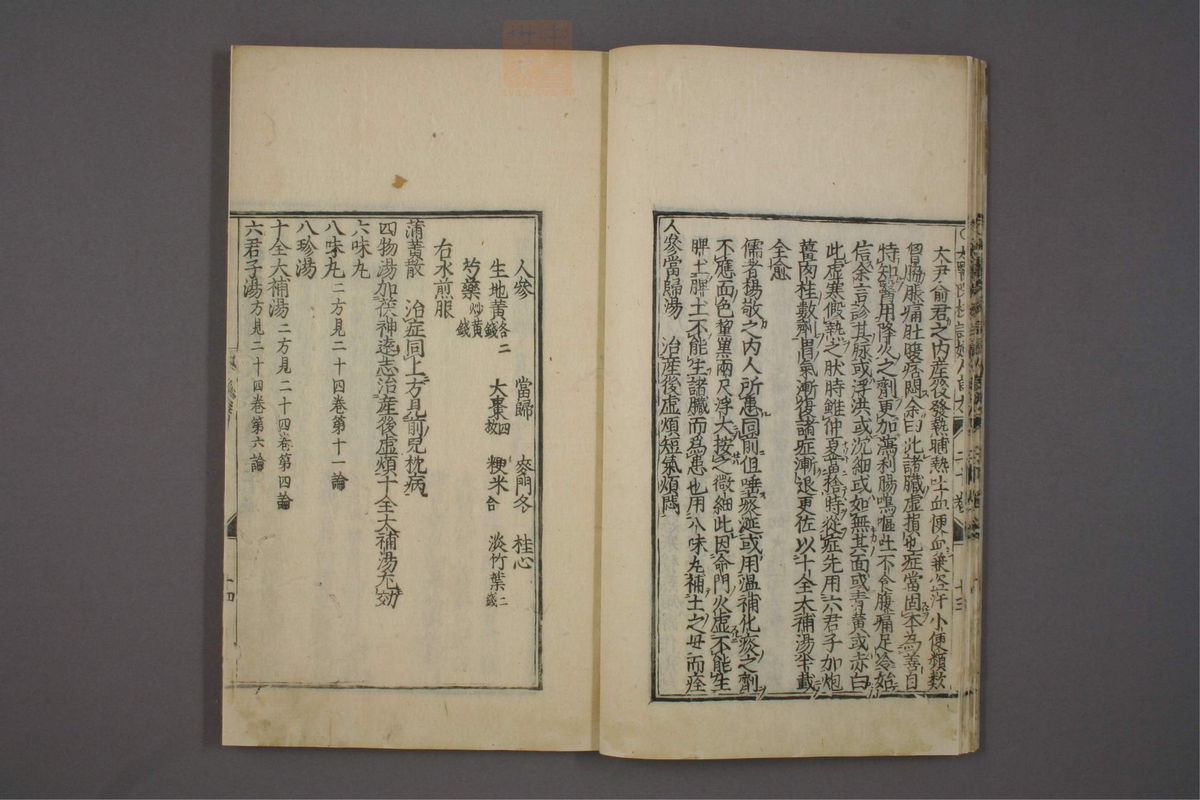 大尹俞君之內産後發熱晡熱吐血便血兼盜汗小便頻數
胷脇脹痛肚腹痞悶余曰此諸臟虛損也症當固本為善自
特知醫用降火之劑更加瀉利腸鳴嘔吐不食腹痛足冷始
信余言診其脉或浮洪或沉細或如無其面或青黄或赤白
此虛寒假熱之狀時雖仲夏當捨時從症先用六君子加炮
薑肉桂數劑胃氣漸復諸症漸退更佐以十全大補湯半載
全愈
儒者楊敬之內人所患同前但唾痰涎或用温補化痰之劑
不應面色黧黒兩尺浮大按之微細此因命門火虛不能生
脾土脾土不能生諸臟而為患也用八味丸補土之母而痊
人參當歸湯　治産後虛煩短氣煩悶
人參　當歸　麥門冬　桂心
生地黄各二錢　大棗四枚　粳米合　淡竹葉二錢
芍藥炒黄錢
右水煎服
蒲黄散　治症同上方見前兒枕病
四物湯加茯神遠志治産後虛煩十全大補湯尤効
六味丸
八味丸二方見二十四卷第十一論
八珍湯
十全大補湯二方見二十四卷第四論
六君子湯方見二十四卷第六論